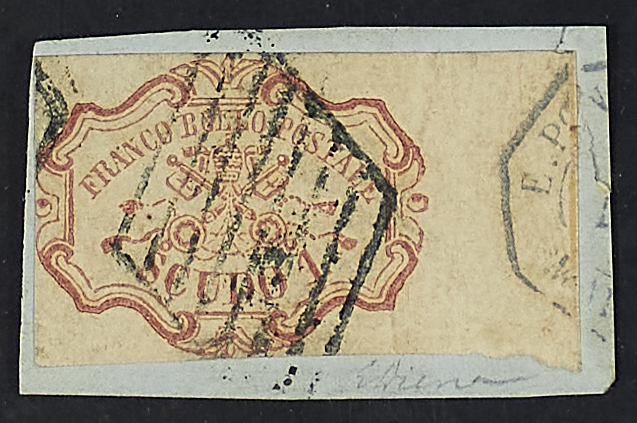 FRANCO BOLLO POSTALE
SCUDO 1
E. PO
EDiena